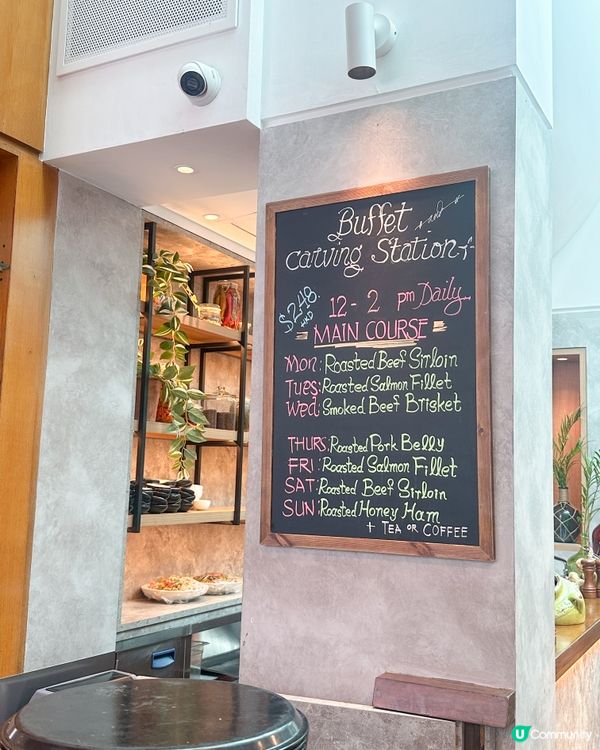 Buffet and
Carving Station
$248
HKD
12-2 pm Daily
MAIN COURSE
Mon: Roasted Beef Sirloin
Tues: Roasted Salmon Fillet
Wed: Smoked Beef Brisket
THURS: Roasted Pork Belly
FRI: Roasted Salmon Fillet
SAT: Roasted Beef Sirloin
SUN: Roasted Honey Ham
+ TEA OR COFFEE
U Community